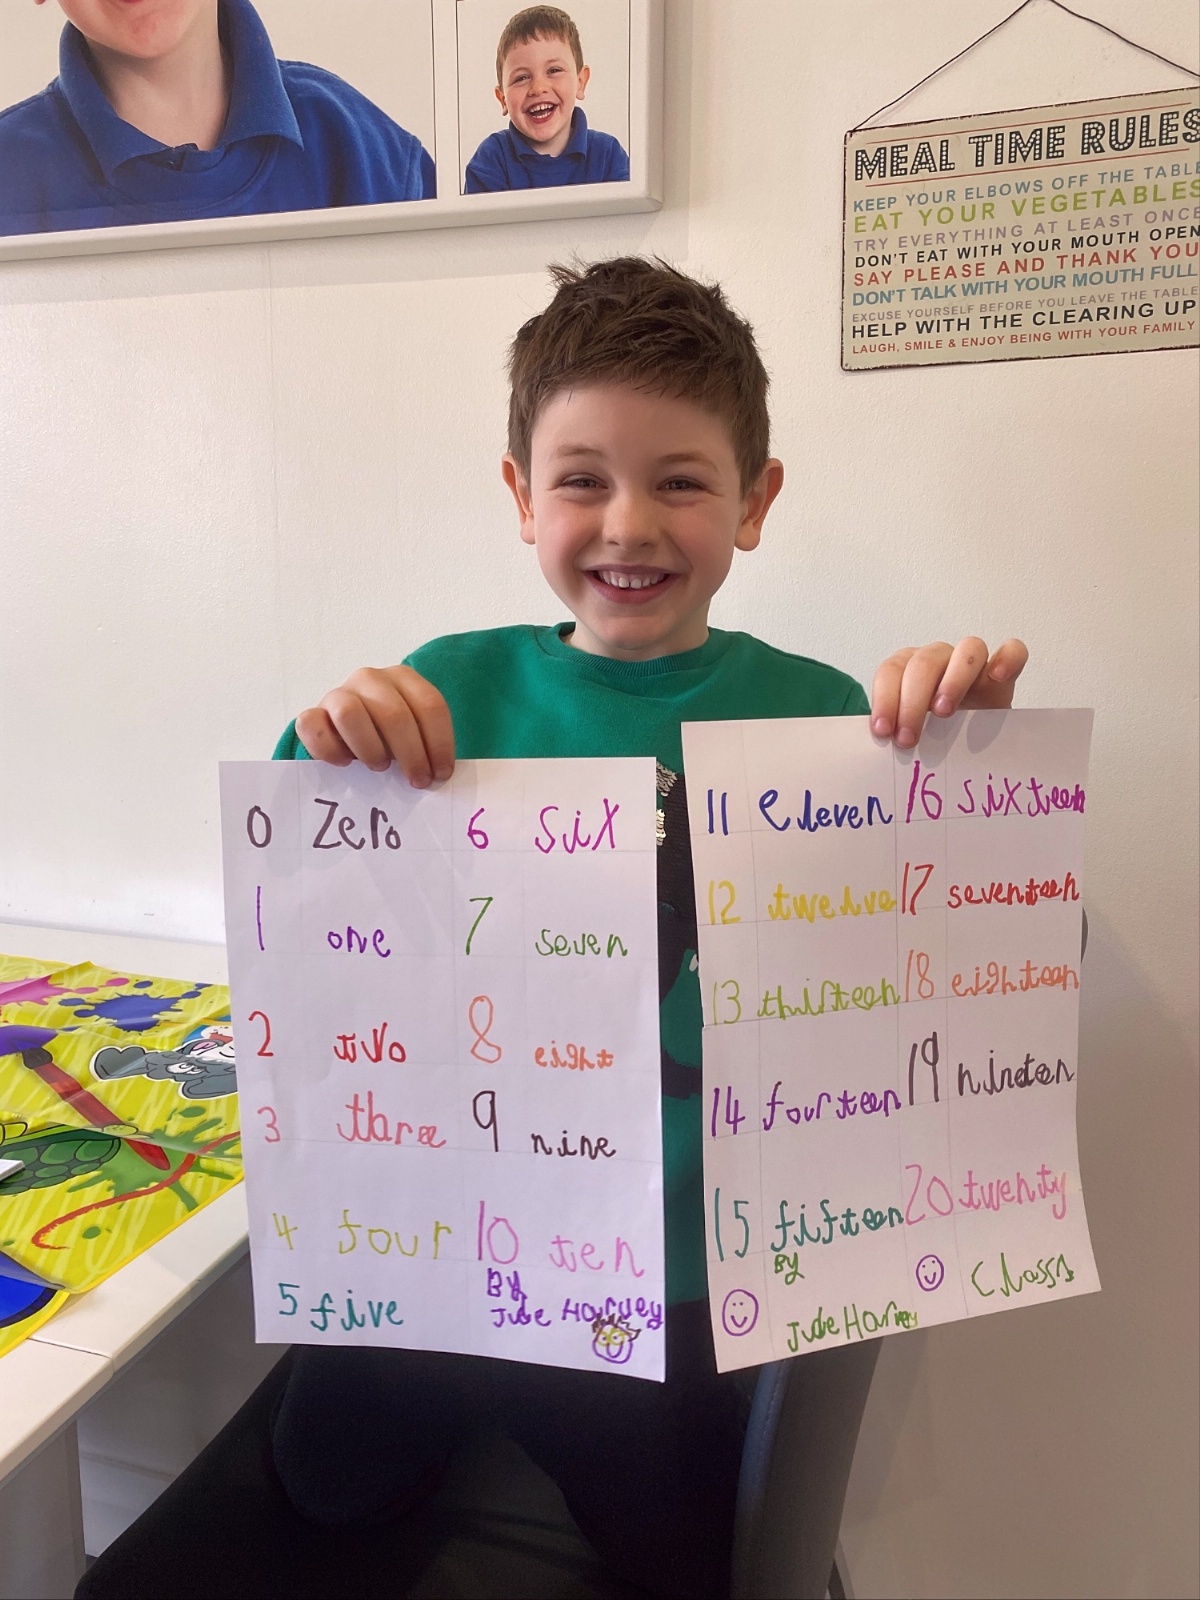 MEAL TIME RULES
KEEP YOUR ELBOWS OFF THE TABLE
EAT YOUR VEGETABLES
TRY EVERYTHING AT LEAST ONCE
DON'T EAT WITH YOUR MOUTH OPEN
SAY PLEASE AND THANK YOU
DON'T TALK WITH YOUR MOUTH FULL
EXCUSE YOURSELF BEFORE YOU LEAVE THE TABLE
HELP WITH THE CLEARING UP
LAUGH, SMILE & ENJOY BEING WITH YOUR FAMILY
0 Zero 6 six
1 one 7 seven
2 two 8 eight
3 three 9 nine
4 four 10 ten
5 five
By
Jude Harvey
11 eleven 16 sixteen
12 twelve 17 seventeen
13 thirteen 18 eighteen
14 fourteen 19
15 fifteen 20 twenty
By
Jude Harvey
Class 1